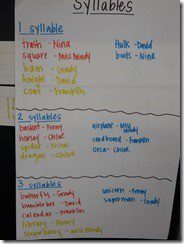 Syllables
1 syllable
trash - Nina
square - Miss Mindy
barn - Grady
knight - David
coat - Franklin
Hulk - David
boots - Nina
2 syllables
basket - Penny
horsey - Chloe
spider - Nina
dragon - Chloe
airplane - Miss Mindy
cardboard - Franklin
Orca - Chloe
3 syllables
butterfly - Grady
bumble bee - David
calendar - Franklin
library - Penny
strawberry - Miss Mindy
unicorn - Penny
superman - Grady